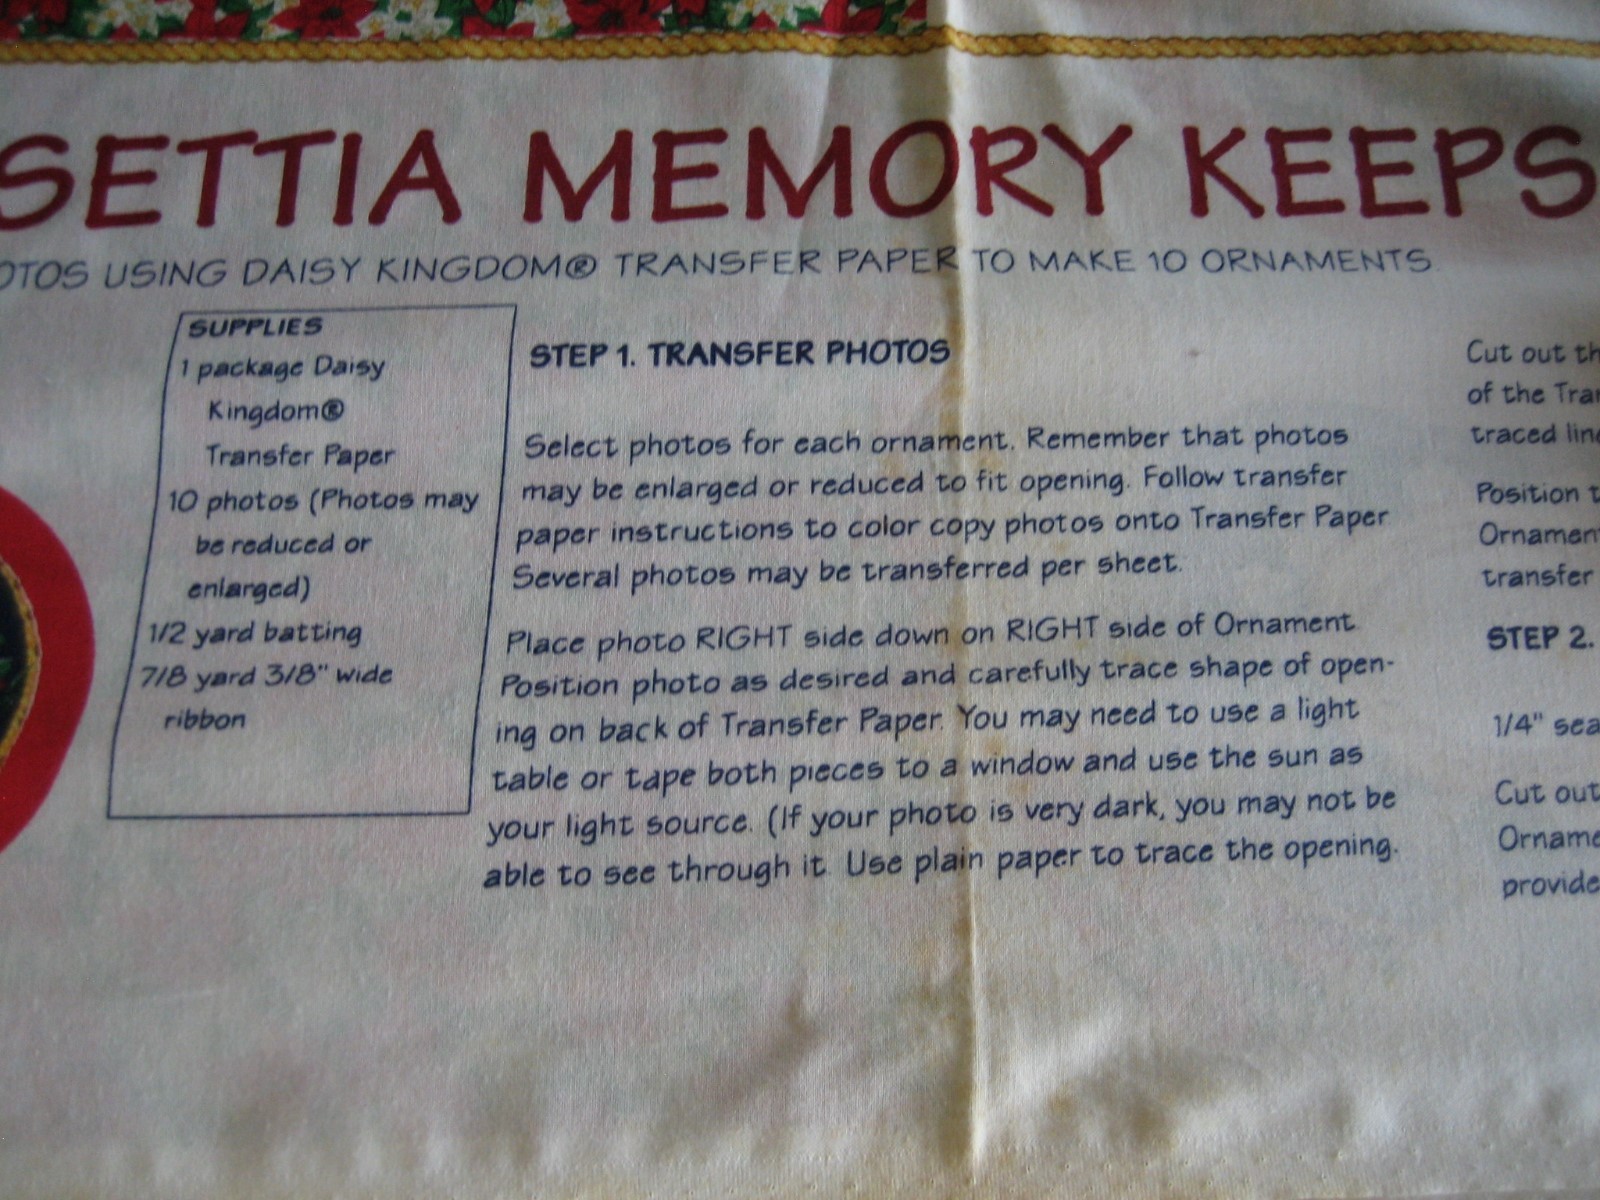 SETTIA MEMORY KEEPS
OTOS USING DAISY KINGDOM® TRANSFER PAPER TO MAKE 10 ORNAMENTS.
SUPPLIES
1 package Daisy
Kingdom®
Transfer Paper
10 photos (Photos may
be reduced or
enlarged)
1/2 yard batting
7/8 yard 3/8" wide
ribbon
STEP 1. TRANSFER PHOTOS
Select photos for each ornament. Remember that photos
may be enlarged or reduced to fit opening. Follow transfer
paper instructions to color copy photos onto Transfer Paper
Several photos may be transferred per sheet.
Place photo RIGHT side down on RIGHT side of Ornament
Position photo as desired and carefully trace shape of open-
ing on back of Transfer Paper. You may need to use a light
table or tape both pieces to a window and use the sun as
your light source. (If your photo is very dark, you may not be
able to see through it. Use plain paper to trace the opening.
Cut out th
of the Tra
traced lin
Position t
Ornamen
transfer
STEP 2.
1/4" sea
Cut out
Orname
provide